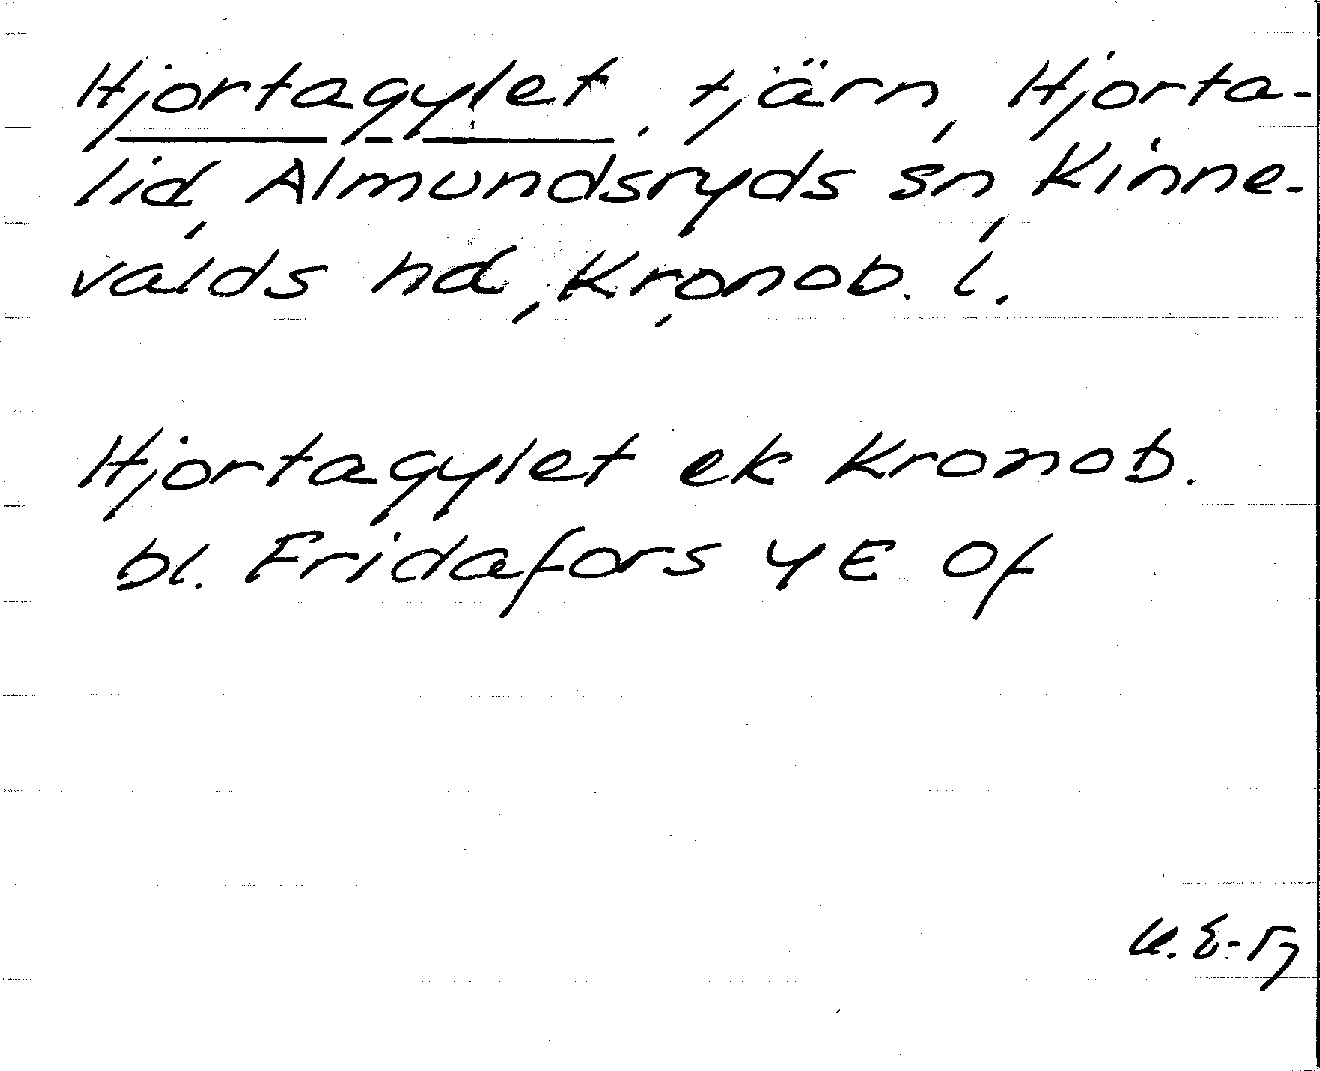 Hjortagylet, tjärn, Hjorta-
lid, Almundsryds sn, Kinne-
valds hd, Kronob. l.
Hjortagylet ek Kronob.
bl. Fridafors 4E Of